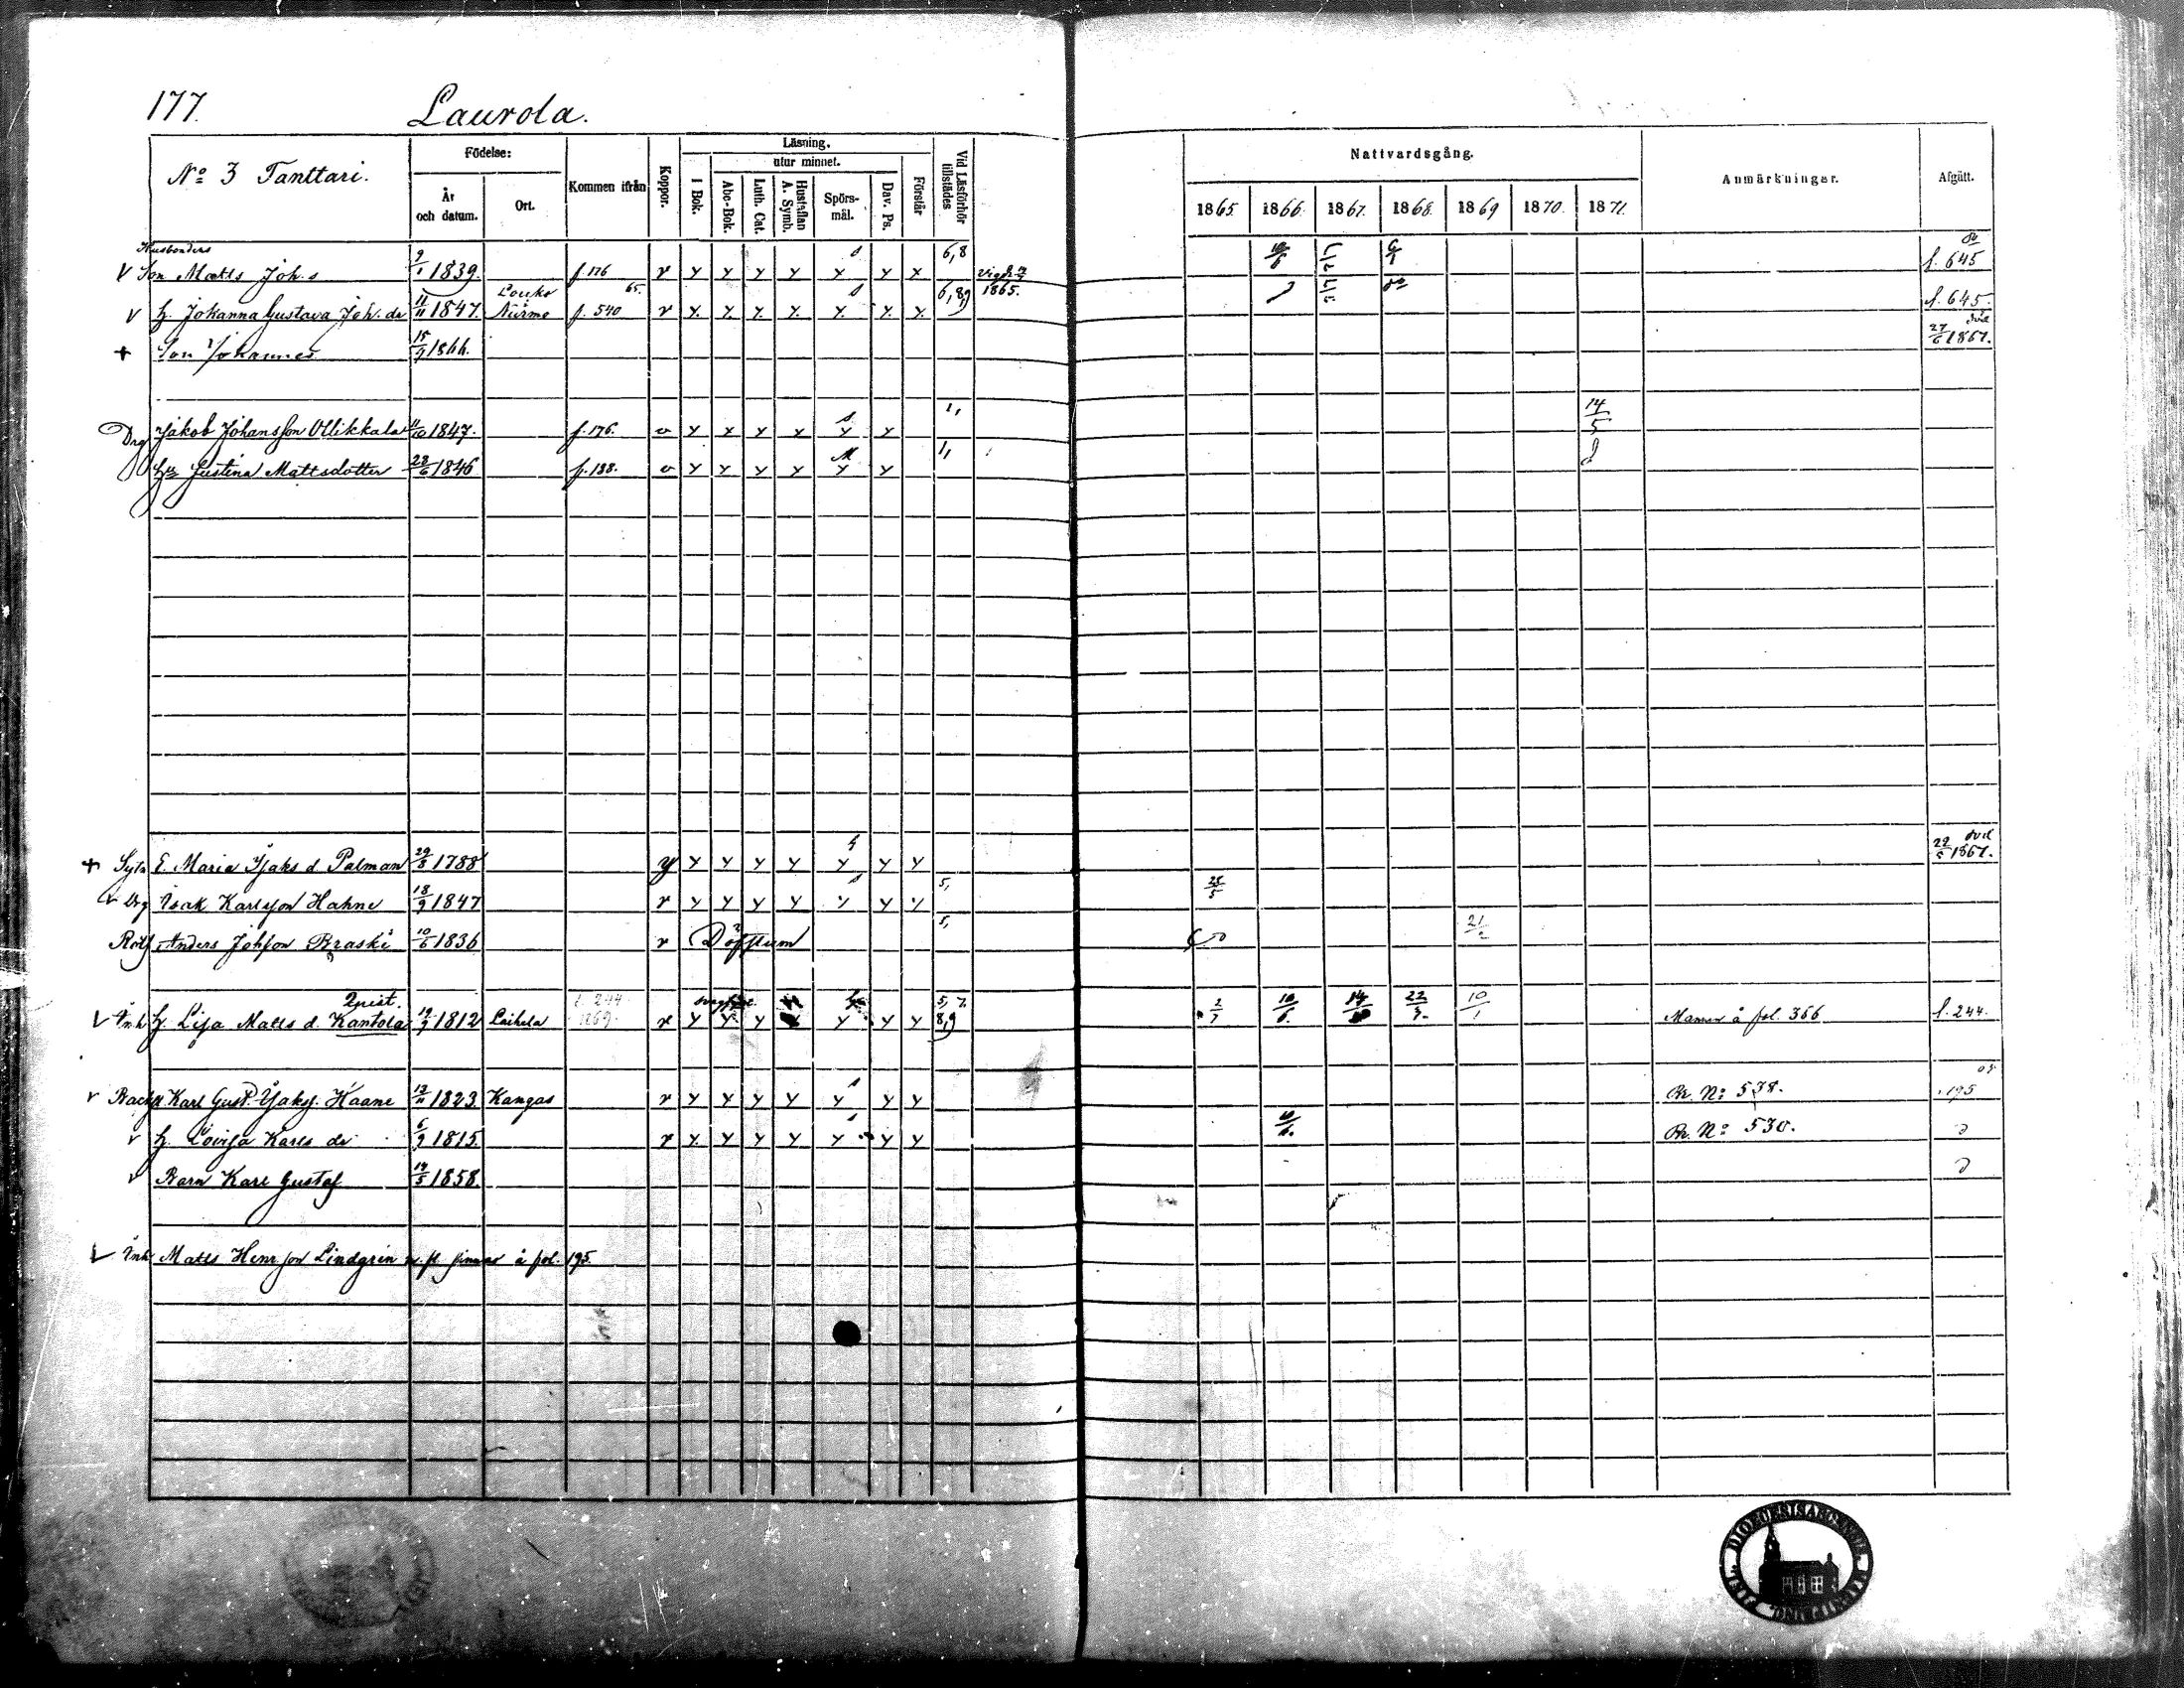 177. Laurola.
No 3 Tanttari.
Födelse:
År och datum.
Ort.
Kommen ifrån
Koppor.
Läsning.
I Bok.
utur minnet.
Abc-Bok.
Luth. Cat.
Hustaflan A. Symb.
Spörs-mål.
Dav. Ps.
Förstår
Vid Läsförhör tillstädes
Nattvardsgång.
1865. 1866. 1867. 1868. 1869 1870. 1871.
Anmärkningar.
Afgått.
Husbonders
V Son Matts Joh. s 9/1 1839. f. 176 v y y y y y y y 6,8 f. 645
1865.
V h. Johanna Gustava Joh. dr 11/11 1847. Nurmo f. 540 65. v y y y y y y y 6,8,9 f. 645.
+ Son Johannes 15/9 1866. död 27/6 1867.
Drg Jakob Johansson Ollikkala 11/10 1847. f. 176. v y y y y y y 1, 14/5
Justina Mattsdotter 28/6 1846 f. 188. v y y y y y y 1,
+ Sytn E. Maria Isaks d. Palman 29/8 1788 y y y y y y y y död 22/5 1867.
v Drg Isak Karlsson Hahne 18/9 1847 v y y y y y y y 5, 25/5
Anders Johsson Braski 10/6 1836 v Dofstum 5, 21/2
qvist.
v Inh h. Lisa Matts d. Kantola 19/7 1812 Laihela f. 244 1869. v y y y y y y 5, 7. 8,9 2/7 10/6. 14 22/3. 10/1 Mannen å fol. 366 f. 244.
v Karl Gust. Isaks. Haane 12/11 1823 Kangas v y y y y y y y Pr. No: 538. 195
v h. Lovisa Karls dr 6/9 1815. v y y y y y y y Pr. No: 530.
v Barn Karl Gustaf 19/5 1858.
Inh Matts Henr son Lindgrin finnas å fol. 195.